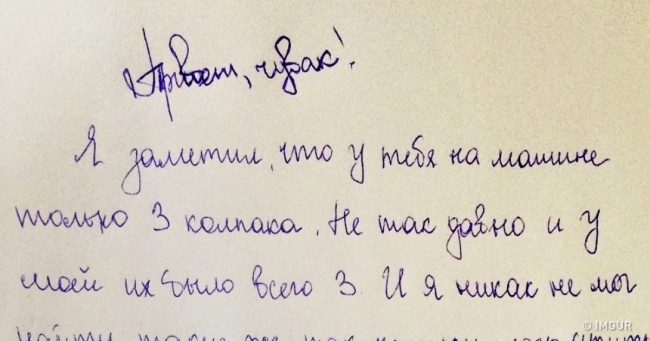 Привет, чувак!
Я заметил, что у тебя на машине
только 3 колпака. Не так давно и у
моей их было всего 3. И я никак не мог
найти такие же
© IMGUR